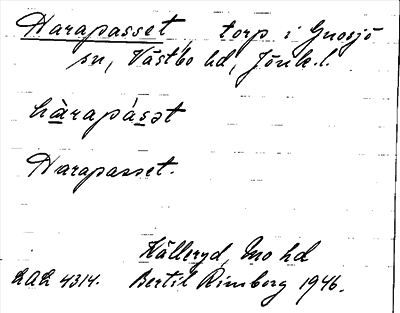 Harapasset, torp i Gnosjö
sn, Västbo hd, Jönk.l.
hàrapásət
Harapasset.
Källeryd, Mo hd
LAL 4314. Bertil Rimborg 1946.